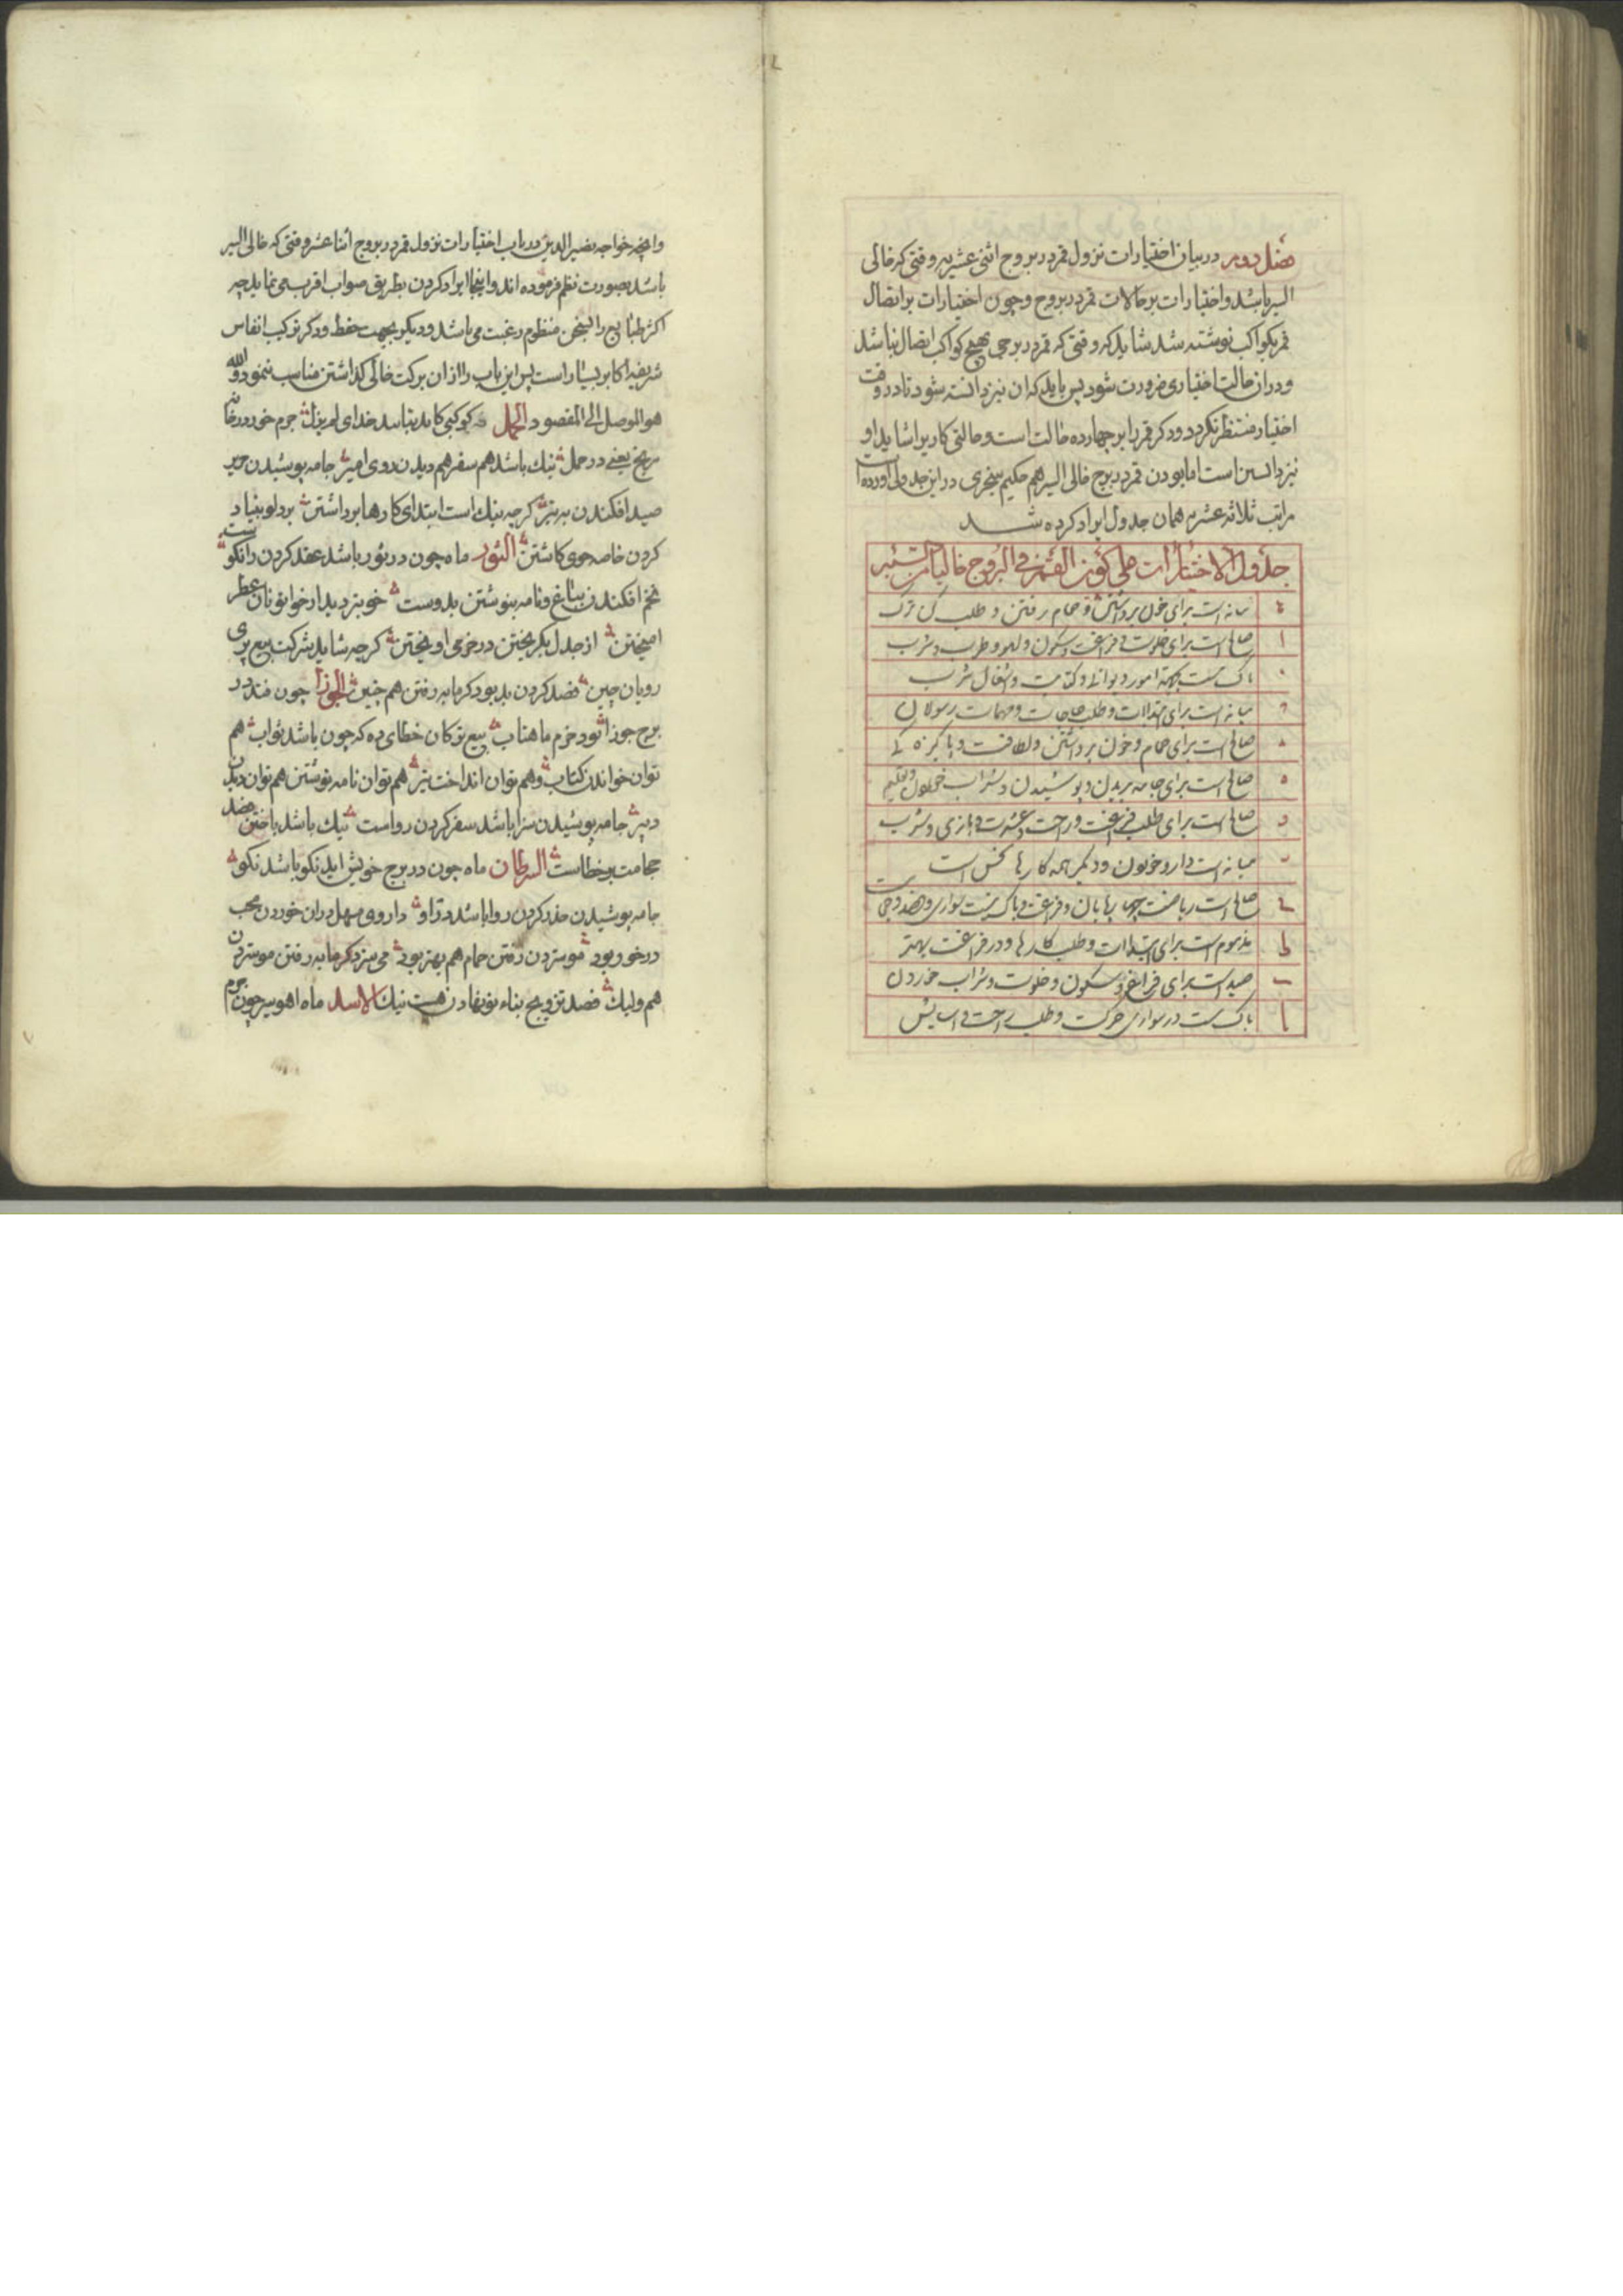 فصل دویم در بیان اختیارات نزول قمر در بروج اثنی عشریه وقتی که خالی
السیر باشد و اختیارات بر حالات قمر در بروج و چون اختیارات بر اتصال
قمر بکواکب نوشته شد شاید که وقتی که قمر در برجی بهیچ کواکب اتصال نباشد
و در ان حالت اختیاری ضرورت شود پس باید که ان نیز دانسته شود تا در وقت
اختیار منتظر نکردد و دکر قمر را بر چهارده حالت است و حالتی کاریرا شاید او
نیز دانستن است اما بودن قمر در برج خالی السیر هم حکیم سنجری در این جدولی آورده است
مراتب ثلاثه عشر بر همان جدول ایراد کرده شد
جدول الاختیارات علی کون القمر فی البروج خالیا من السیر
میانه است برای خون برداشتن و حمام رفتن و طلب کردن ترک
ا صالح است برای خلوت و فراغت و سکون و لهو و طرب و شرب
باک است بهمه امور دیوانها و کتابت و اشغال شرب
میانه است برای ابتداآت و طلب حاجات و مهمات رسولان
صالح است برای حمام و خون برداشتن و لطافت و پاکیزه کی
ه صالح است برای جامه بریدن و پوشیدن و شراب خوردن و تعلیم
و صالح است برای طلب فراغت و راحت و عشرت و بازی و شرب
میانه است دارو خوردن و دیکر همه کارها نحس است
ح صالح است ریاضت چهارپایان و فراغت و باک نیست سواری و
ط مذموم است برای ابتداآت و طلب کارها و در فراغت بهتر
ی جید است برای فراغ و سکون و خلوت و شراب خوردن
یا باک است در سواری حرکت و طلب راحت و اسایش
وانچه خواجه نصیر الدین در باب اختیارات نزول قمر در بروج اثنا عشر وقتی که خالی السیر
باشد بصورت نظم فرموده اند و اینجا ایراد کردن بطریق صواب اقرب می نماید چه
اکثر طبایع را بسخن منظوم رغبت می باشد و دیکر بجهت حفظ و دکر ترکیب انفاس
شریفه اکابر بسیار است پس این باب را از ان برکت خالی کذاشتن مناسب ننمود والله
هو الموصل الی المقصود الحمل کوکبی کاید بتایید خدای لم یزل جرم خور در خانه
مریخ یعنی در حمل نیک باشد هم سفر هم دیدن روی امیر جامه پوشیدن حریر
صید افکندن به تیر کرچه نیک است ابتدای کارها برداشتن بر دلو بنیاد
کردن خاصه جوی کاشتن الثور ماه چون در ثور باشد عقد کردن را نکوست
تخم افکندن بباغ و نامه بنوشتن بدوست خوبتر دیدار خواتونان عطر
امیختن از جدل بکریختن در خرمی اویختن کرچه شاید شرکت بیع پری
رویان چین فصد کردن بد بود کرمابه رفتن هم چنین الجوزا چون فتد در
برج جوزا نور خرم ماهتاب بیع ترکان خطای ده که چون باشد ثواب هم
توان خواندن کتاب و هم توان انداخت تیر هم توان نامه نوشتن هم توان دیدن
دبیر جامه پوشیدن سزا باشد سفر کردن رواست نیک باشد باختن فصد
حجامت بر خطاست السرطان ماه چون در برج خویش اید نکو باشد نکو
جامه پوشیدن حذر کردن روا باشد در او داروی مسهل دران خوردن عجب
در خور بود موستردن رفتن حمام هم بهتر بود می سزد کرمابه رفتن موستردن
هم ولیک فصد تزویج بناء نو نهادن هست نیک الاسد ماه اهوسیر چون جرم